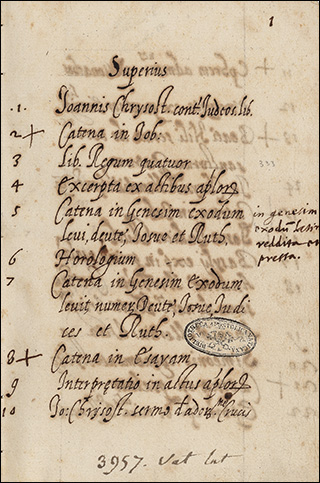 1
Superius
.1. Joannis Chrysost. cont. Judeos. lib.
2+ Catena in Job.
3 lib. Regum quatuor
4 Excerpta ex actibus aplor
5 Catena in Genesim exodum
leui, deute, Josue et Ruth.
in genesim
exodu latine
reddita et
pressa.
333
6 Horologium
7 Catena in Genesim Exodum
leuit, numer, Deute, Josue, Judi
ces et Ruth.
8+ Catena in Esayam
9 Interpretatio in actus aplor
10 Jo: Chrysost. sermo d ador. Crucis
3957. Vat lat